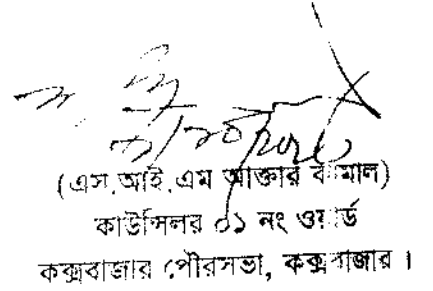 (এস.আই.এম আক্তার কামাল)
কাউন্সিলর ০১ নং ওয়ার্ড
কক্সবাজার পৌরসভা, কক্সবাজার।